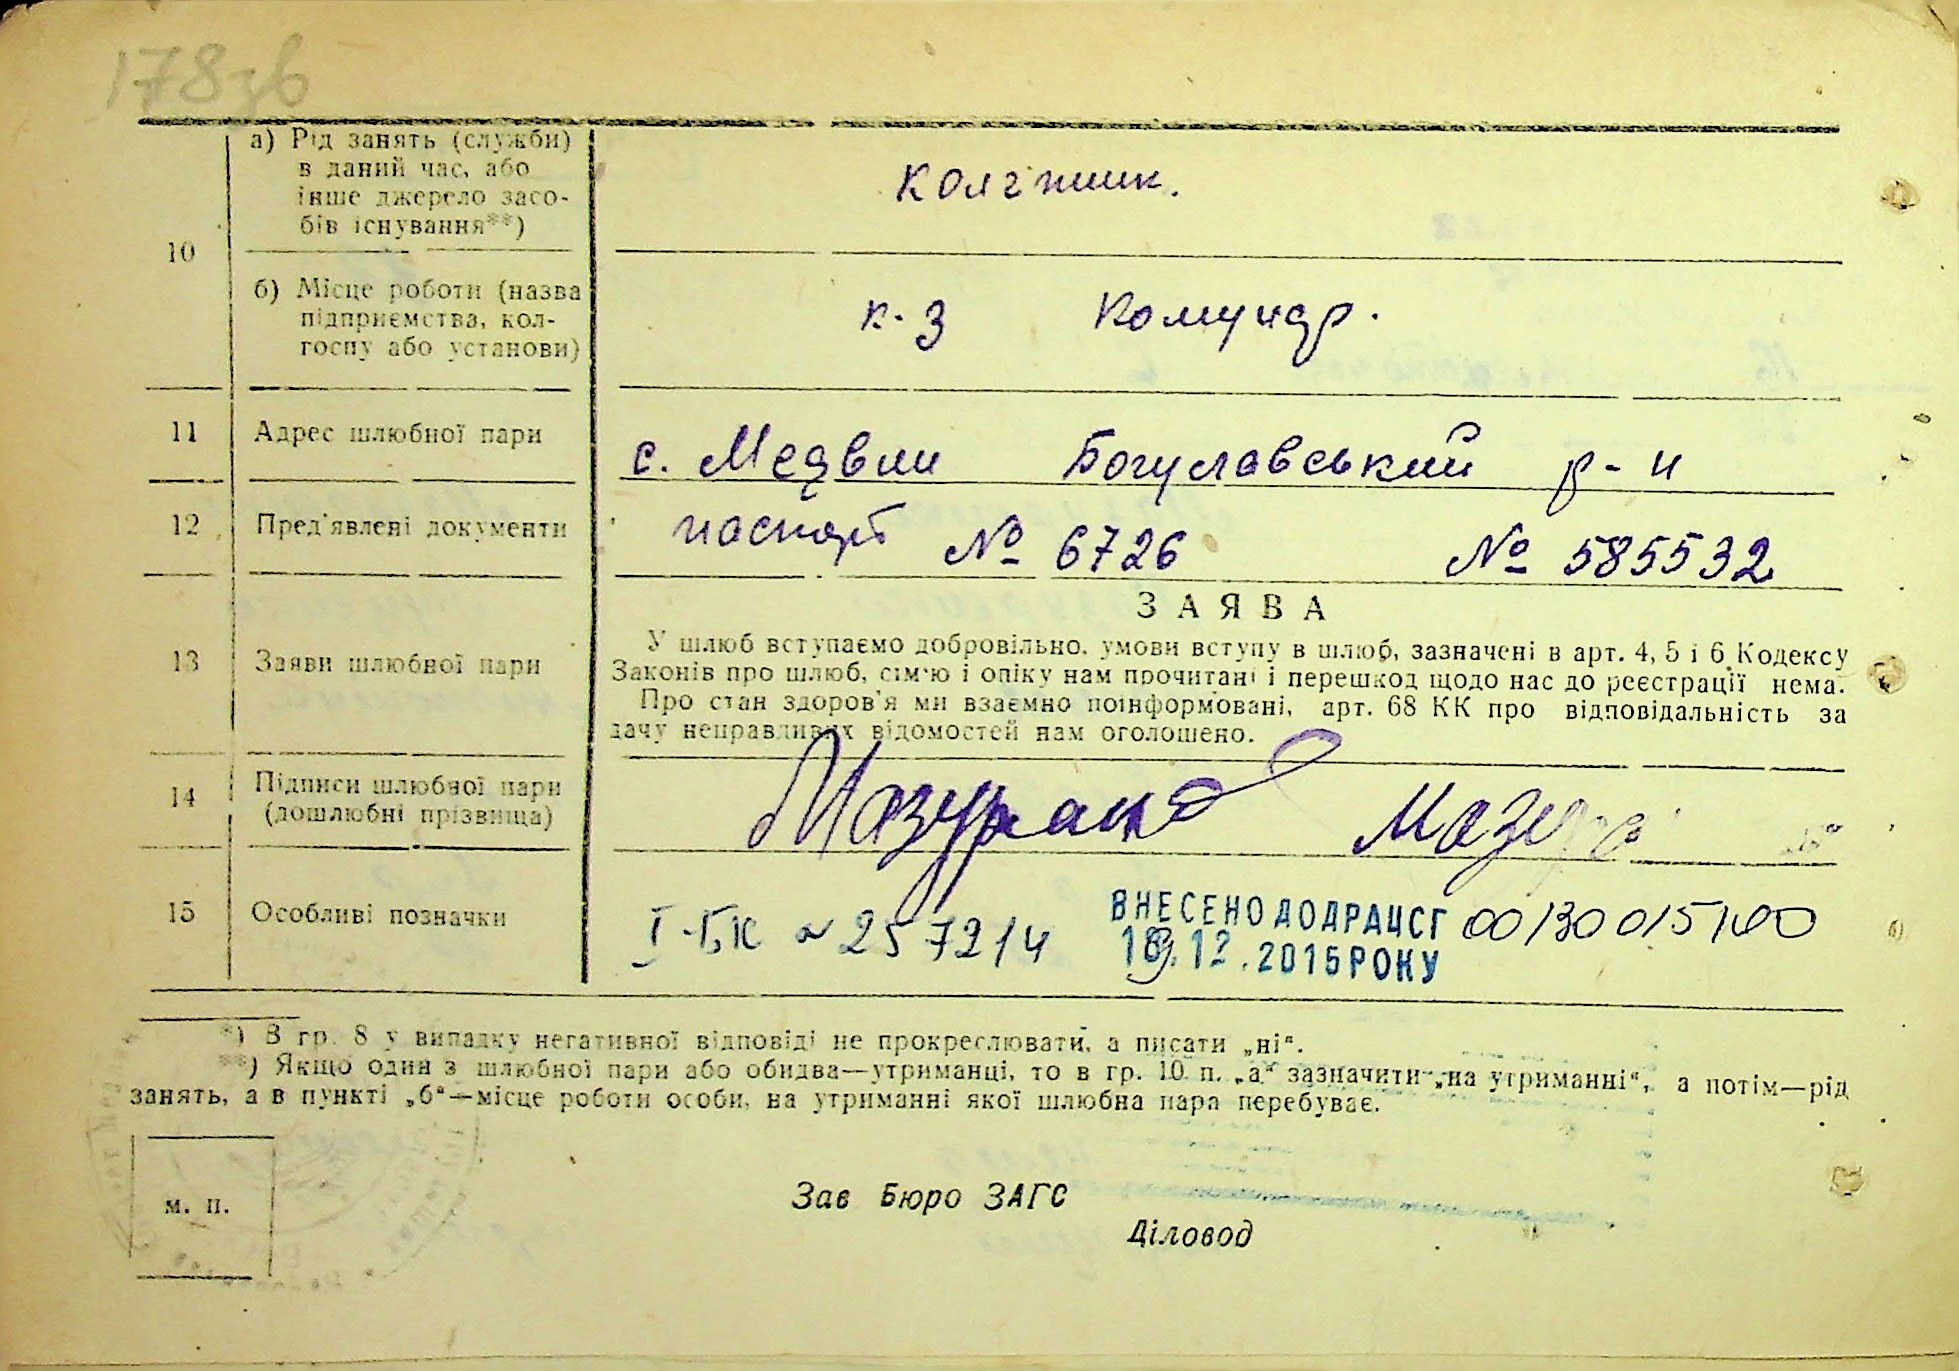 178зв
а) Рід занять (служби)
в даний час, або
інше джерело засо-
бів існування**)
10
б) Місце роботи (назва
підприємства, кол-
госпу або установи)
к-з Комунар.
11 Адрес шлюбної пари
с. Медвин Богуславський р-н
12 Пред'явлені документи
паспорт № 6726 № 585532
ЗАЯВА
13 Заяви шлюбної пари
У шлюб вступаємо добровільно, умови вступу в шлюб, зазначені в арт. 4, 5 і 6 Кодексу
Законів про шлюб, сім'ю і опіку нам прочитані і перешкод щодо нас до реєстрації нема.
Про стан здоров'я ми взаємно поінформовані, арт. 68 КК про відповідальність за
дачу неправдивих відомостей нам оголошено.
14 Підписи шлюбної пари
(дошлюбні прізвища)
15 Особливі позначки
І-БК № 257214
ВНЕСЕНО ДО ДРАЦСГ 00130015100
19.12.2015 РОКУ
*) В гр. 8 у випадку негативної відповіді не прокреслювати, а писати „ні“.
**) Якщо один з шлюбної пари або обидва—утриманці, то в гр. 10 п. „а“ зазначити „на утриманні“, а потім—рід
занять, а в пункті „б“—місце роботи особи, на утриманні якої шлюбна пара перебуває.
м. п.
Зав Бюро ЗАГС
Діловод